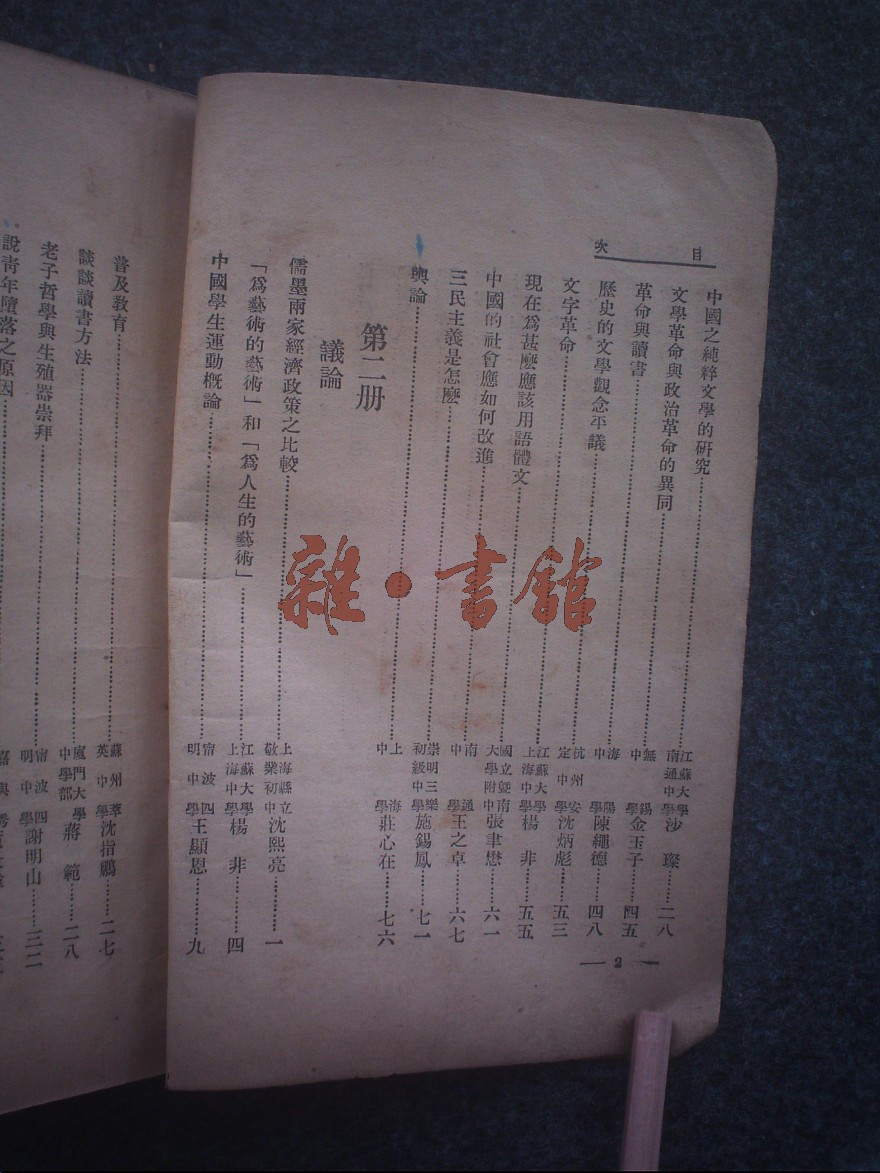 目次
中國之純粹文學的研究……江蘇大學南通中學沙璨……二八
文學革命與政治革命的異同……無錫中學金玉子……四五
革命與讀書……海陽中學陳繩德……四八
歷史的文學觀念平議……杭州安定中學沈炳彪……五三
文字革命……江蘇大學上海中學楊非……五五
現在為甚麽應該用語體文……國立暨南大學附中張聿懋……六一
中國的社會應如何改進……南通中學王之卓……六七
三民主義是怎麽……崇明三樂初級中學施錫鳳……七一
輿論……上海中學莊心在……七六
第二册
議論
儒墨兩家經濟政策之比較……上海縣立敬業初中沈熙亮……一
「爲藝術的藝術」和「爲人生的藝術」……江蘇大學上海中學楊非……四
中國學生運動概論……甯波四明中學王顯恩……九
— 2 —
普及教育……蘇州萃英中學沈指鵬……二七
談談讀書方法……廈門大學中學部蔣範……二八
老子哲學與生殖器崇拜……甯波四明中學謝明山……三二
說青年墮落之原因……嘉興
雜·書館